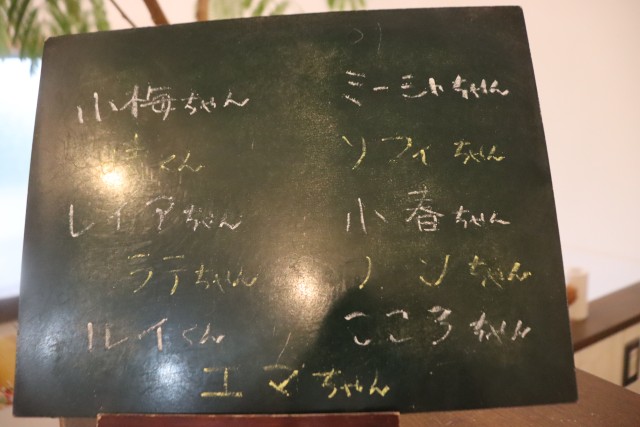 小梅ちゃん
ミーシャちゃん
くん
ソフィちゃん
レイアちゃん
小春ちゃん
ララちゃん
ノンちゃん
ルイくん
こころちゃん
エマちゃん